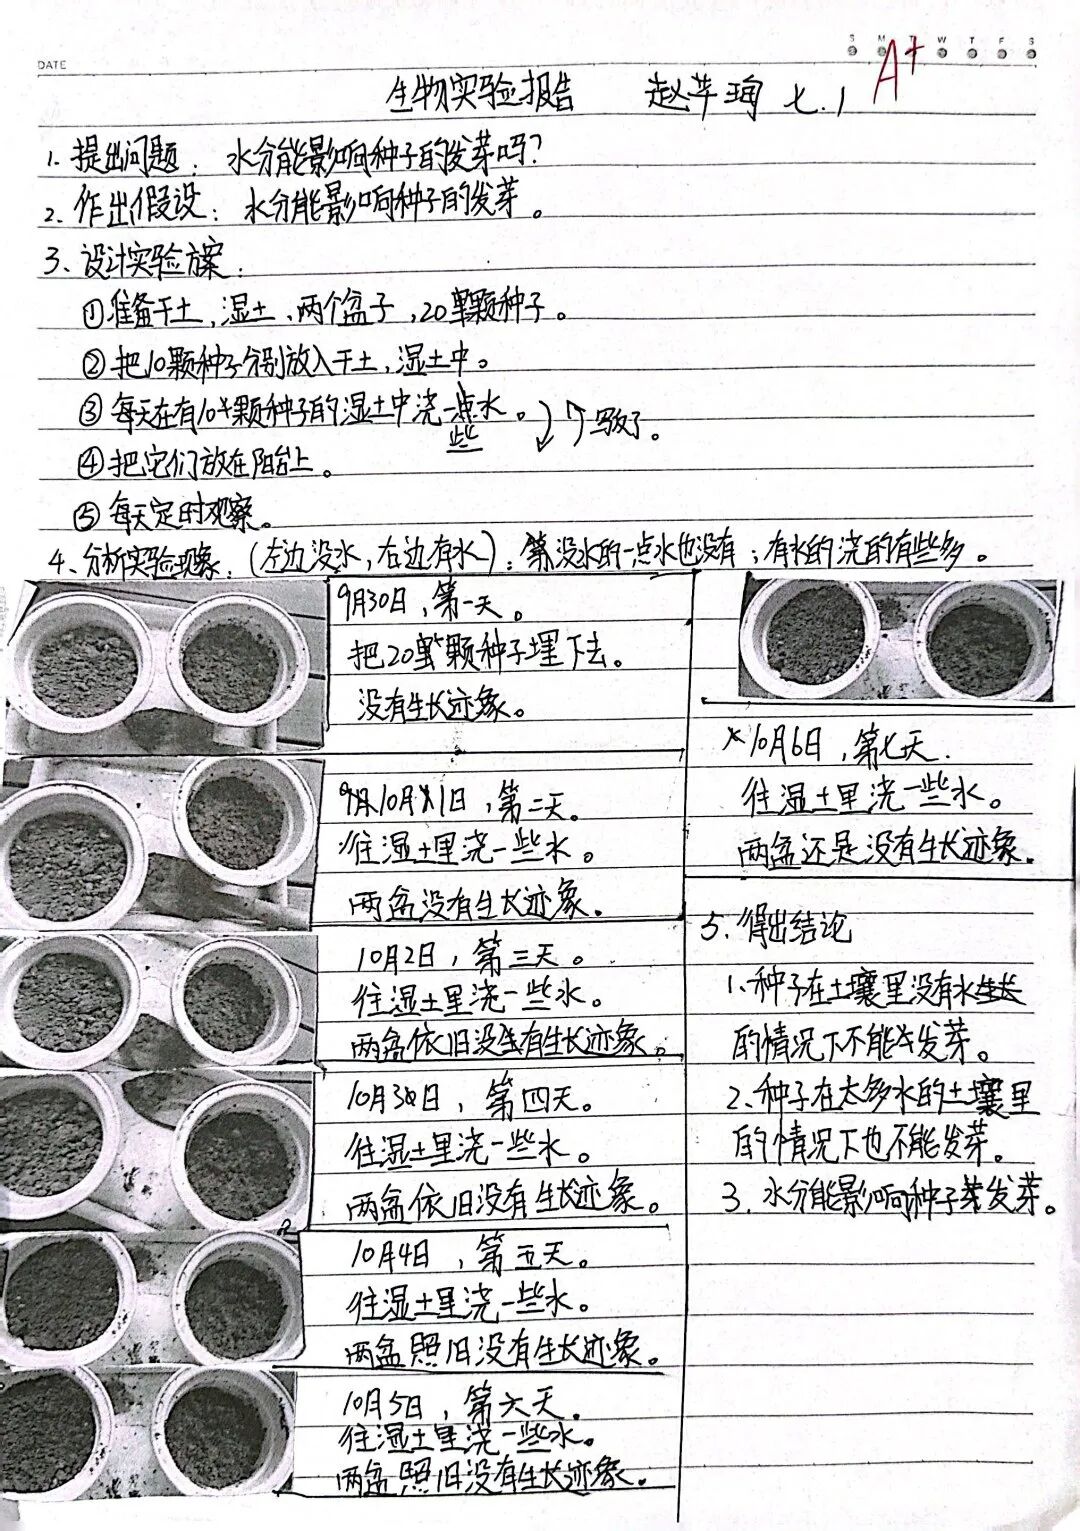 DATE
S M T W T F S
A+
生物实验报告 赵苹珣 七.1
1. 提出问题：水分能影响种子的发芽吗？
2. 作出假设：水分能影响种子的发芽。
3、设计实验方案：
①准备干土，湿土、两个盆子，20颗种子。
②把10颗种子分别放入干土，湿土中。
③每天在有10颗种子的湿土中浇一些水。 写反了。
④把它们放在阳台上。
⑤每天定时观察。
4、分析实验现象：（左边没水，右边有水）：没水的一点水也没有；有水的浇的有些多。
9月30日，第一天。
把20颗种子埋下去。
没有生长迹象。
10月1日，第二天。
往湿土里浇一些水。
两盆没有生长迹象。
10月2日，第三天。
往湿土里浇一些水。
两盆依旧没有生长迹象。
10月3日，第四天。
往湿土里浇一些水。
两盆依旧没有生长迹象。
10月4日，第五天。
往湿土里浇一些水。
两盆照旧没有生长迹象。
10月5日，第六天.
往湿土里浇一些水。
两盆照旧没有生长迹象。
10月6日，第七天.
往湿土里浇一些水。
两盆还是没有生长迹象.
5.得出结论
1、种子在土壤里没有水
的情况下不能发芽。
2、种子在太多水的土壤里
的情况下也不能发芽。
3、水分能影响种子发芽。